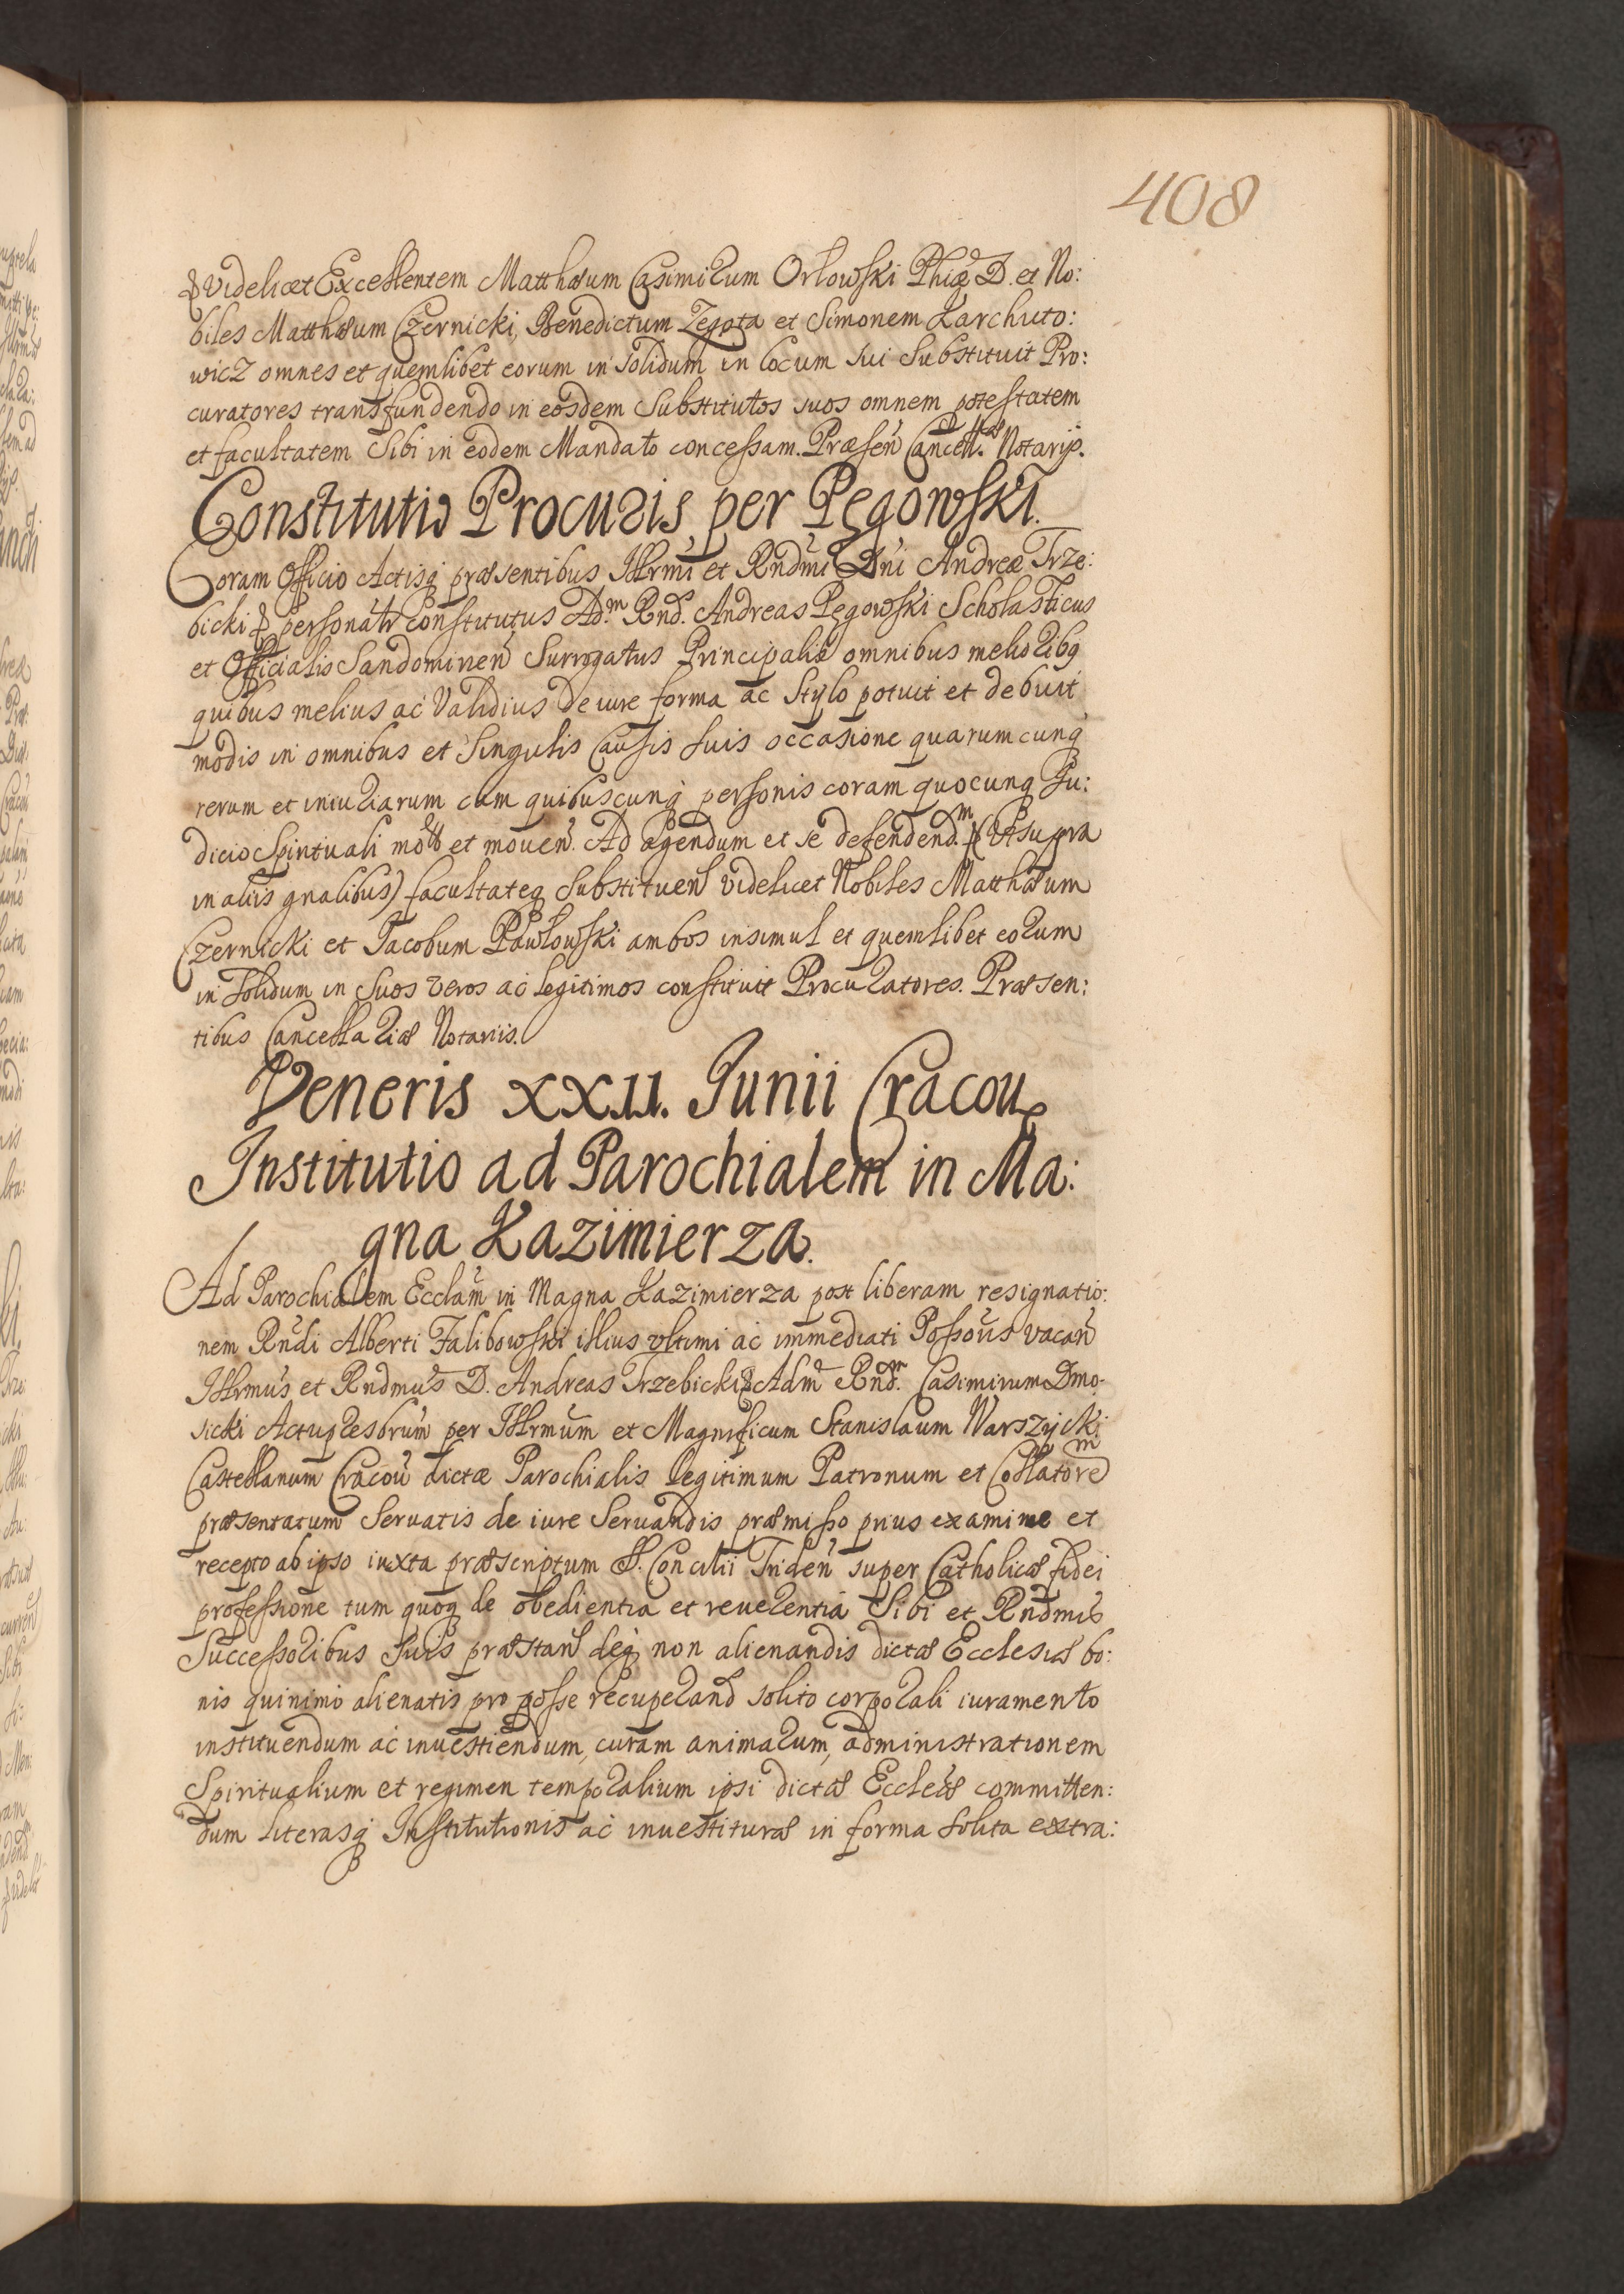 408
& Videlicet Excellentem Matthæum Casimirum Orłowski Phiæ D. et No:
biles Matthæum Czernicki, Benedictum Zegota et Simonem Karchuto:
wicz omnes et quemlibet eorum in solidum in locum sui Substituit Pro:
curatores transfundendo in eosdem Substitutos suos omnem potestatem
et facultatem Sibi in eodem Mandato concessam. Præsen Cancell. Notarijs.
Constitutio Procuris per Pęgowski.
Coram Officio Actisq præsentibus Illrmi et Rndmi Dni Andreæ Trze:
bicki & personalr constitutus Ad.m Rnd. Andreas Pęgowski Scholasticus
et Officialis Sandomirien Surrogatus Principalis omnibus melioribq
quibus melius ac Validius de iure forma ac Stylo potuit et debuit
modis in omnibus et Singulis Causis suis occasione quarumcunq
rerum et iniuriarum cum quibuscunq personis coram quocunq Ju:
dicio Spirituali mot et mouen. Ad agendum et se defendend.m & (Vt supra
in aliis gnalibus) facultateq Substituen videlicet Nobiles Matthæum
Czernicki et Jacobum Pawłowski ambos insimul et quemlibet eorum
in solidum in Suos veros ac legitimos constituit Procuratores. Præsen:
tibus Cancellariæ Notariis.
Veneris XXII. Junii Cracouæ
Institutio ad Parochialem in Ma:
gna Kazimierza.
Ad Parochialem Ecclam in Magna Kazimierza post liberam resignatio:
nem Rndi Alberti Falibowski illius vltimi ac immediati Possoris vacan
Illrmus et Rndmus D. Andreas Trzebicki & Adm Rnd.m Casimirum Dmo:
sicki Actu Presbrum per Illrmum et Magnificum Stanislaum Warszycki
Castellanum Cracou dictæ Parochialis legitimum Patronum et Collatorem
præsentatum Seruatis de iure Seruandis præmisso prius examine et
recepto ab ipso iuxta præscriptum S. Concilii Triden super Catholicæ fidei
professione tum quoq de obedientia et reuerentia Sibi et Rndmis
Successoribus Suis præstan deq non alienandis dictæ Ecclesiæ bo:
nis quinimo alienatis pro posse recuperand solito corporali iuramento
instituendum ac inuestiendum, curam animarum, administrationem
Spiritualium et regimen temporalium ipsi dictæ Eccleæ committen:
dum literasq Institutionis ac inuestituræ in forma solita extra: